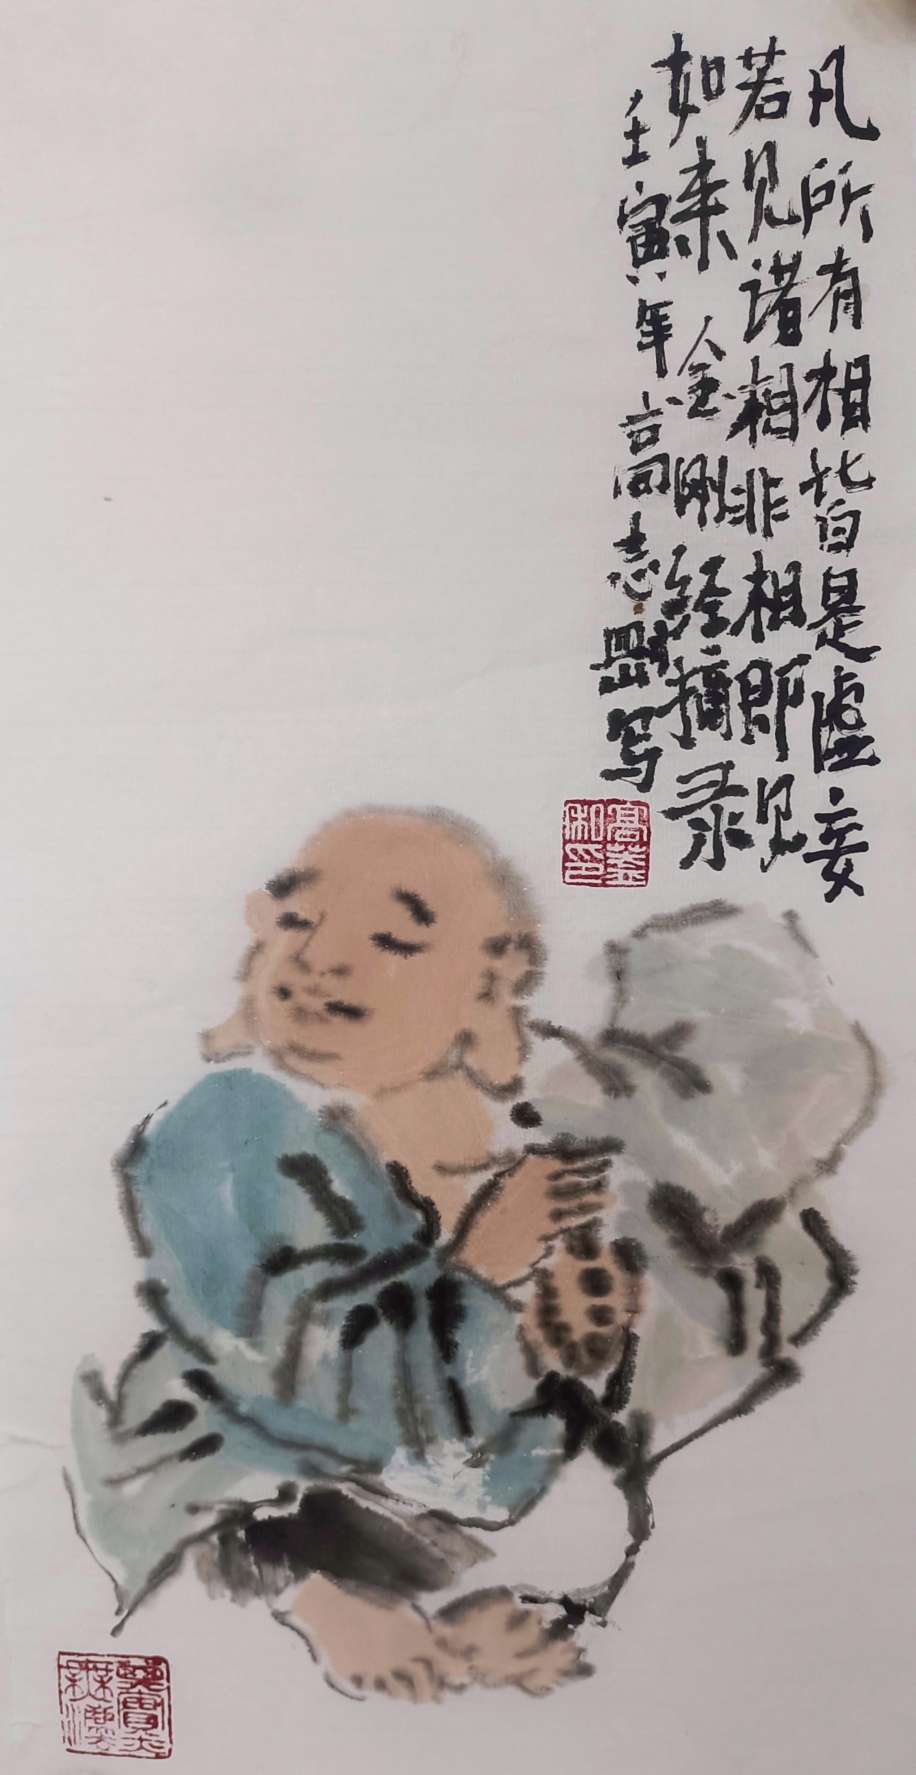 凡所有相皆是虚妄
若见诸相非相即见
如来 金刚经摘录
壬寅年高志刚写